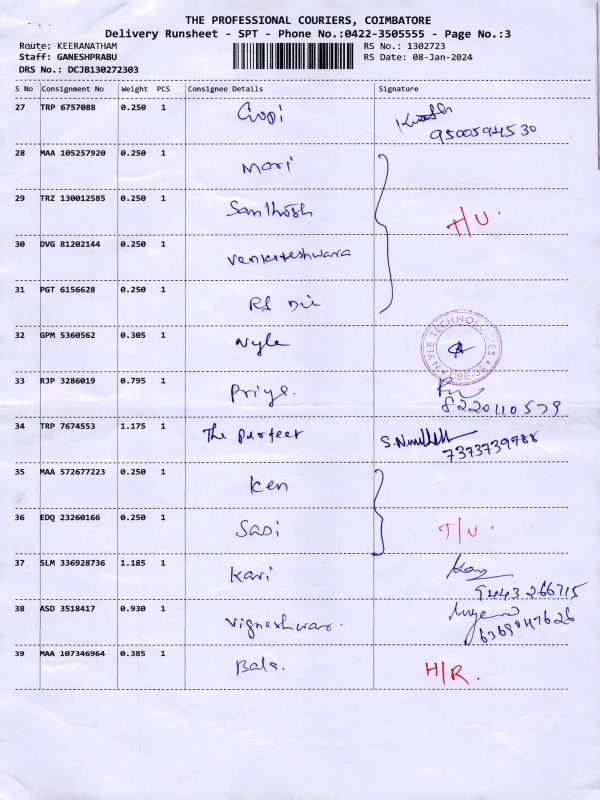 THE PROFESSIONAL COURIERS, COIMBATORE
Delivery Runsheet - SPT - Phone No.:0422-3505555 - Page No.:3
Route: KEERANATHAM RS No.: 1302723
Staff: GANESHPRABU RS Date: 08-Jan-2024
DRS No.: DCJB130272303
S No Consignment No Weight PCS Consignee Details Signature
27 TRP 6757088 0.250 1 Gopi
9500594530
28 MAA 105257920 0.250 1 Mari
29 TRZ 130012585 0.250 1 Santhosh T/U.
30 DVG 81202144 0.250 1 Venkateshwara
31 PGT 6156628 0.250 1
32 GPM 5360562 0.305 1 Nyle NYLE TECHNOLOGIES CBE-35
33 RJP 3286019 0.795 1 Priya.
8220110579
34 TRP 7674553 1.175 1 The Parfect
7373739788
35 MAA 572677223 0.250 1 Ken
36 EDQ 23260166 0.250 1 Sasi T/U.
37 SLM 336928736 1.185 1 Kari
9443 266715
38 ASD 3518417 0.930 1 Vigneshwar.
6369847626
39 MAA 107346964 0.385 1 Bala. H/R.